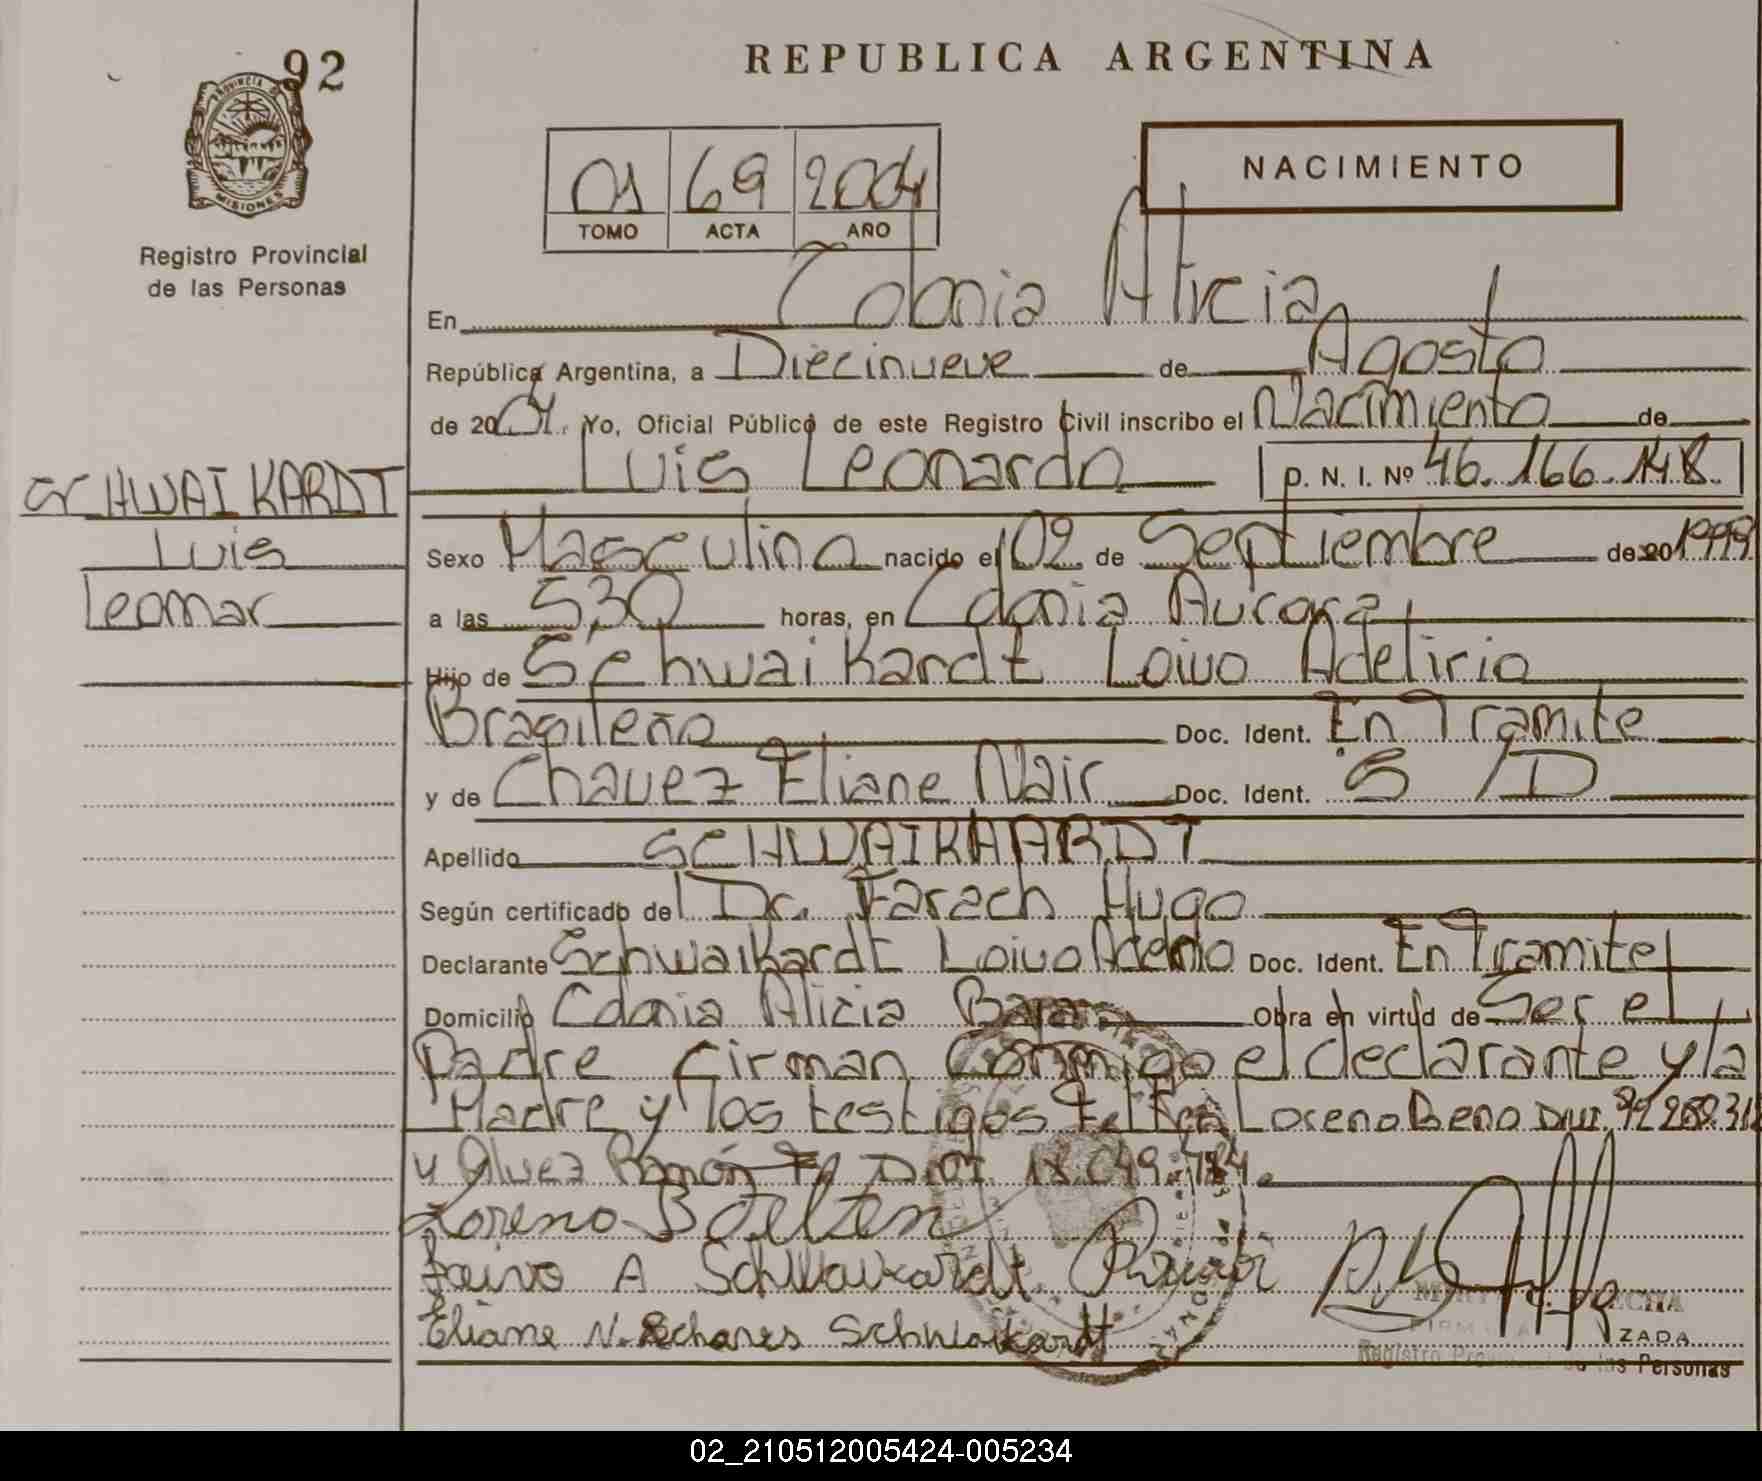 92
REPUBLICA ARGENTINA
PROVINCIA DE
MISIONES
Registro Provincial
de las Personas
01 69 2004
TOMO ACTA AÑO
NACIMIENTO
En Colonia Alicia
República Argentina, a Diecinueve de Agosto
de 2004. Yo, Oficial Público de este Registro Civil inscribo el Nacimiento de
Luis Leonardo D. N. I. Nº 46.166.148.
SCHWAIKARDT
Luis
Leomar
Sexo Masculino nacido el 02 de Septiembre de 20 1999
a las 5,30 horas, en Colonia Aurora
Hijo de Schwaikardt Loivo Adelirio
Brasileño Doc. Ident. En Tramite
y de Chavez Eliane Nair Doc. Ident. S/D
Apellido SCHWAIKHARDT
Según certificado del Dr. Farach Hugo
Declarante Schwaikardt Loivo Doc. Ident. En Tramite
Domicilio Colonia Alicia Baja Obra en virtud de Ser el
Padre firman Conmigo el declarante y la
Madre y los testigos Loreno Beno DNI.
y Alvez Ramón DNI 18.049.784.
Loreno B
A Schwaikardt
Eliane N. Schwaikardt
ZADA
Registro Provincial de las Personas
02_210512005424-005234